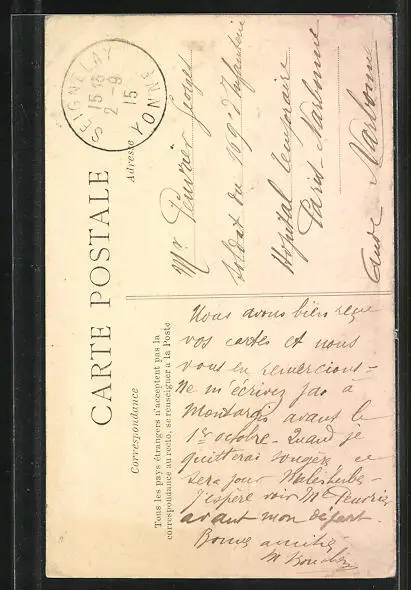 CARTE POSTALE
Correspondance
Tous les pays étrangers n'acceptent pas la
correspondance au recto, se renseigner à la Poste
Nous avons bien reçu
vos cartes et nous
vous en remercions =
Ne m'écrivez pas à
Montargis avant le
1er octobre - Quand je
quitterai Songères ce
sera pour Malesherbes -
J'espère voir Me Feuvrier
avant mon départ.
Bonne amitié
Adresse
SEIGNELAY
15 15
2 - 9
15
YONNE
Mr Feuvrier Georges
Soldat du 169e d'Infanterie
Hôpital temporaire
Paris - Narbonne
Narbonne
Aude